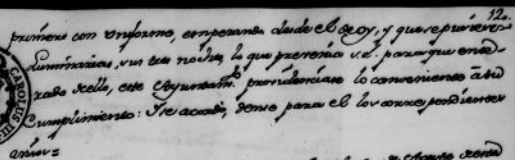 12
primero con Uniforme, empezando desde el de oy, y que se pusiesen
Luminarias, sus tres noches, lo que prevenia V.E. para que ente-
rado dello, este Ayuntam.to providenciase lo conveniente à su
Cumplimiento: Y se acordó, dense para el los correspondientes
CAROLUS III